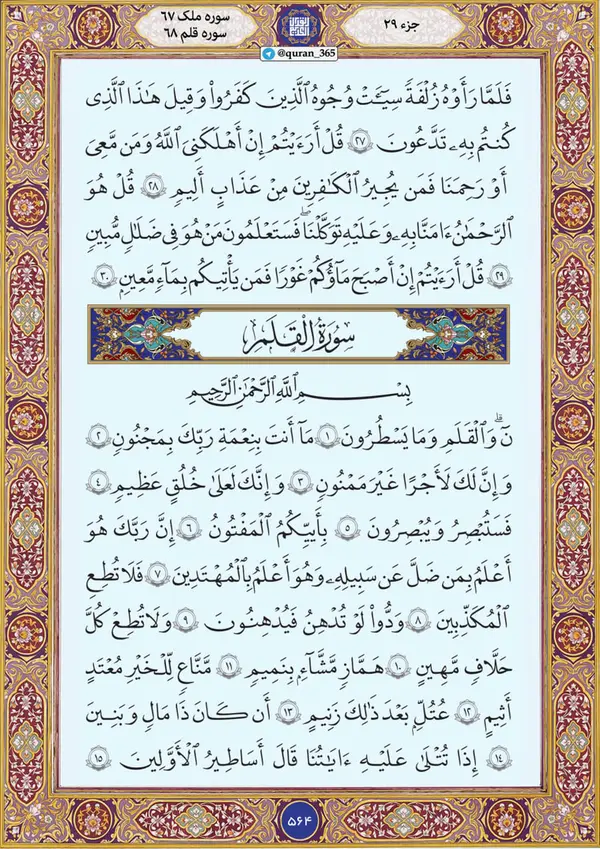 جزء ۲۹
سوره ملک ۶۷
سوره قلم ۶۸
@quran_365
فَلَمَّا رَأَوْهُ زُلْفَةً سِيٓـَٔتْ وُجُوهُ ٱلَّذِينَ كَفَرُوا۟ وَقِيلَ هَـٰذَا ٱلَّذِى
كُنتُم بِهِۦ تَدَّعُونَ ۲۷ قُلْ أَرَءَيْتُمْ إِنْ أَهْلَكَنِىَ ٱللَّهُ وَمَن مَّعِىَ
أَوْ رَحِمَنَا فَمَن يُجِيرُ ٱلْكَـٰفِرِينَ مِنْ عَذَابٍ أَلِيمٍ ۲۸ قُلْ هُوَ
ٱلرَّحْمَـٰنُ ءَامَنَّا بِهِۦ وَعَلَيْهِ تَوَكَّلْنَا ۖ فَسَتَعْلَمُونَ مَنْ هُوَ فِى ضَلَـٰلٍ مُّبِينٍ
۲۹ قُلْ أَرَءَيْتُمْ إِنْ أَصْبَحَ مَآؤُكُمْ غَوْرًا فَمَن يَأْتِيكُم بِمَآءٍ مَّعِينٍۭ ۳۰
سُورَةُ الْقَلَمِ
بِسْمِ ٱللَّهِ ٱلرَّحْمَـٰنِ ٱلرَّحِيمِ
نٓ ۚ وَٱلْقَلَمِ وَمَا يَسْطُرُونَ ۱ مَآ أَنتَ بِنِعْمَةِ رَبِّكَ بِمَجْنُونٍ ۲
وَإِنَّ لَكَ لَأَجْرًا غَيْرَ مَمْنُونٍ ۳ وَإِنَّكَ لَعَلَىٰ خُلُقٍ عَظِيمٍ ۴
فَسَتُبْصِرُ وَيُبْصِرُونَ ۵ بِأَييِّكُمُ ٱلْمَفْتُونُ ۶ إِنَّ رَبَّكَ هُوَ
أَعْلَمُ بِمَن ضَلَّ عَن سَبِيلِهِۦ وَهُوَ أَعْلَمُ بِٱلْمُهْتَدِينَ ۷ فَلَا تُطِعِ
ٱلْمُكَذِّبِينَ ۸ وَدُّوا۟ لَوْ تُدْهِنُ فَيُدْهِنُونَ ۹ وَلَا تُطِعْ كُلَّ
حَلَّافٍ مَّهِينٍ ۱۰ هَمَّازٍ مَّشَّآءٍۭ بِنَمِيمٍ ۱۱ مَّنَّاعٍ لِّلْخَيْرِ مُعْتَدٍ
أَثِيمٍ ۱۲ عُتُلٍّۭ بَعْدَ ذَٰلِكَ زَنِيمٍ ۱۳ أَن كَانَ ذَا مَالٍ وَبَنِينَ
۱۴ إِذَا تُتْلَىٰ عَلَيْهِ ءَايَـٰتُنَا قَالَ أَسَـٰطِيرُ ٱلْأَوَّلِينَ ۱۵
۵۶۴